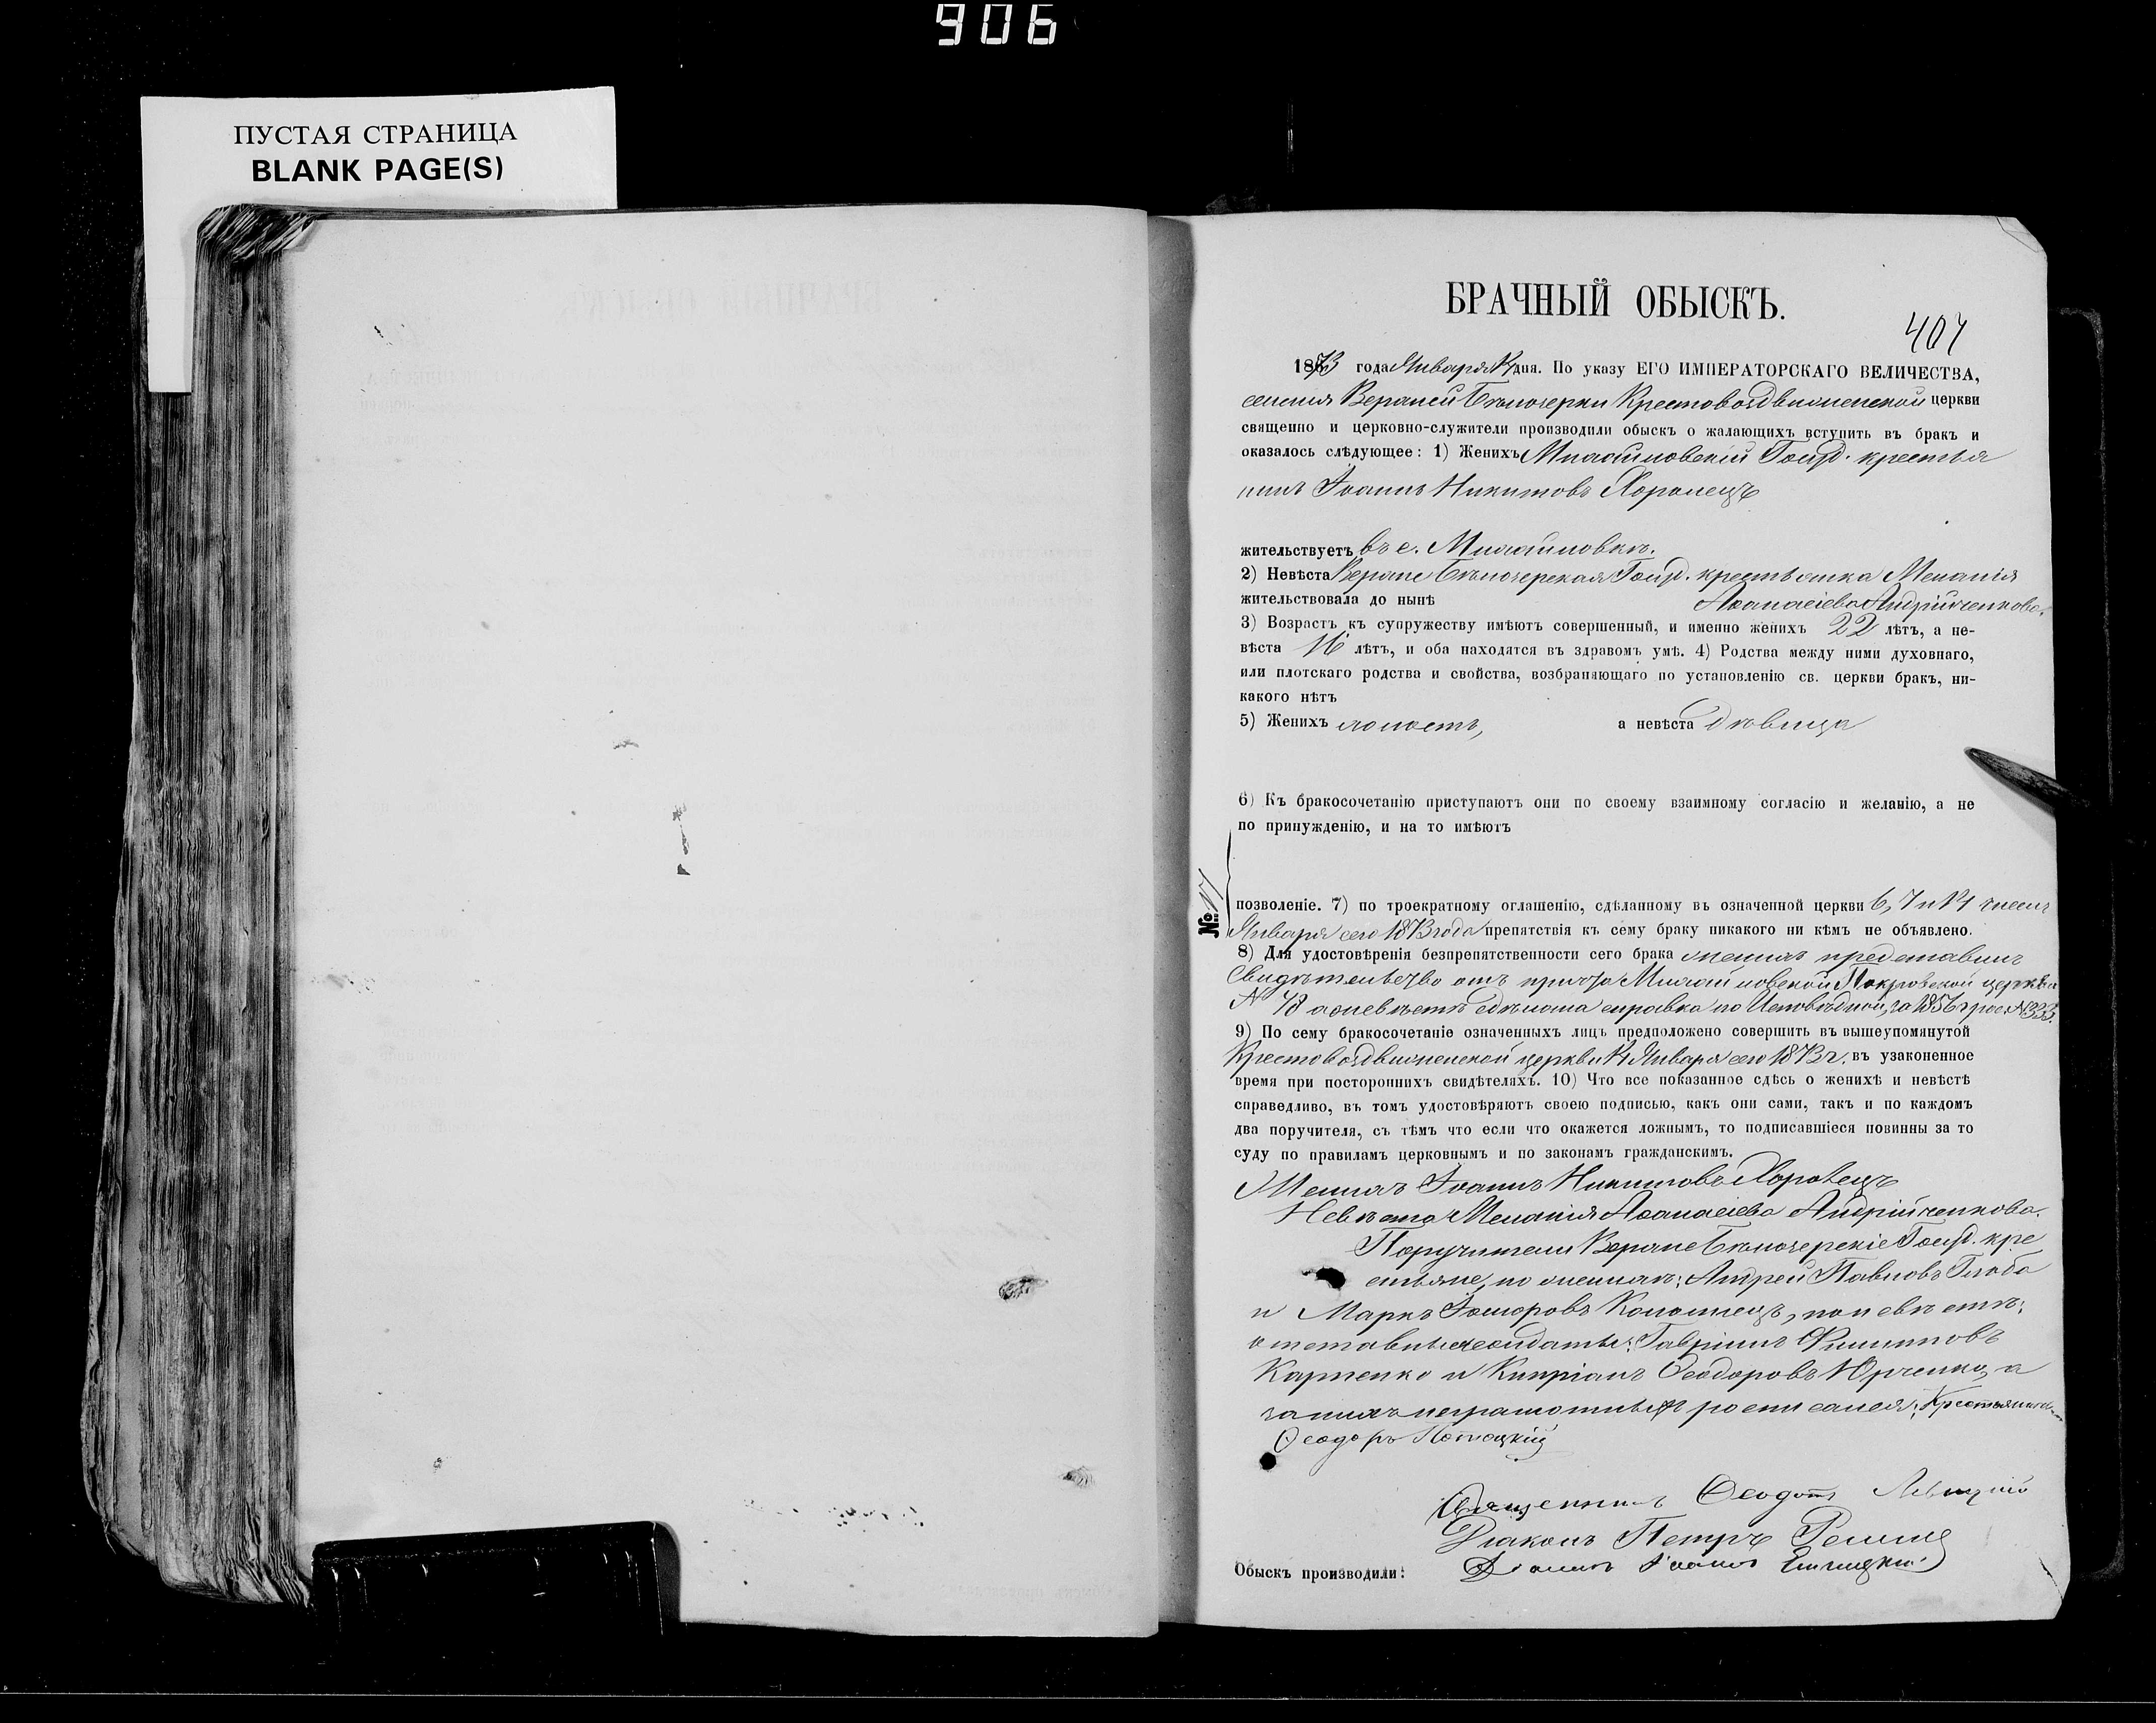 906
ПУСТАЯ СТРАНИЦА
BLANK PAGE(S)
БРАЧНЫЙ ОБЫСКЪ.
407
1873 года Января 14 дня. По указу ЕГО ИМПЕРАТОРСКАГО ВЕЛИЧЕСТВА,
селенія Верхней Бѣлозерки Крестовоздвиженской церкви
священно и церковно-служители производили обыскъ о жалающихъ вступить въ бракъ и
оказалось слѣдующее: 1) Женихъ Михайловскій Госуд. крестья
нинъ Іоаннъ Никитовъ
жительствуетъ въ с. Михайловкѣ.
2) Невѣста Верхне Бѣлозерская Госуд. крестьянка Меланія
жительствовала до нынѣ Аѳанасіева Андрійченкова.
3) Возрастъ къ супружеству имѣютъ совершенный, и именно женихъ 22 лѣтъ, а не-
вѣста 16 лѣтъ, и оба находятся въ здравомъ умѣ. 4) Родства между ними духовнаго,
или плотскаго родства и свойства, возбраняющаго по установленію св. церкви бракъ, ни-
какого нѣтъ
5) Женихъ холостъ, а невѣста дѣвица
6) Къ бракосочетанію приступаютъ они по своему взаимному согласію и желанію, а не
по принужденію, и на то имѣютъ
№ 17
позволеніе. 7) по троекратному оглашенію, сдѣланному въ означенной церкви 6, 7 и 14 чиселъ
Января сего 1873 года препятствія къ сему браку никакого ни кѣмъ не объявлено.
8) Для удостовѣренія безпрепятственности сего брака женихъ представилъ
Свидѣтельство отъ причта Михайловской Покровской церкви
№ 48 а о невѣстѣ сдѣлана справка по Исповѣдной, за 1856 г. рос. № 333.
9) По сему бракосочетаніе означенныхъ лицъ предположено совершить въ вышеупомянутой
Крестовоздвиженской церкви 14 Января сего 1873 г. въ узаконенное
время при постороннихъ свидѣтеляхъ. 10) Что все показанное сдѣсь о женихѣ и невѣстѣ
справедливо, въ томъ удостовѣряютъ своею подписью, какъ они сами, такъ и по каждомъ
два поручителя, съ тѣмъ что если что окажется ложнымъ, то подписавшіеся повинны за то
суду по правиламъ церковнымъ и по законамъ гражданскимъ.
Женихъ Іоаннъ Никитовъ
Невѣста Меланія Аѳанасіева Андрійченкова.
Поручители Верхне Бѣлозерскіе Госуд. кре
стьяне, по женихѣ: Андрей Павловъ Глоба
и Маркъ Коломіецъ, по невѣстѣ:
отставные солдаты: Гавріилъ Филиповъ
Карпенко и Кипріанъ Ѳеодоровъ Юрченко, а
за нихъ неграмотныхъ росписался: Крестьянинъ
Ѳеодоръ
Священникъ Ѳеодотъ Левицкій
Діаконъ Петръ
Обыскъ производили: Іоаннъ